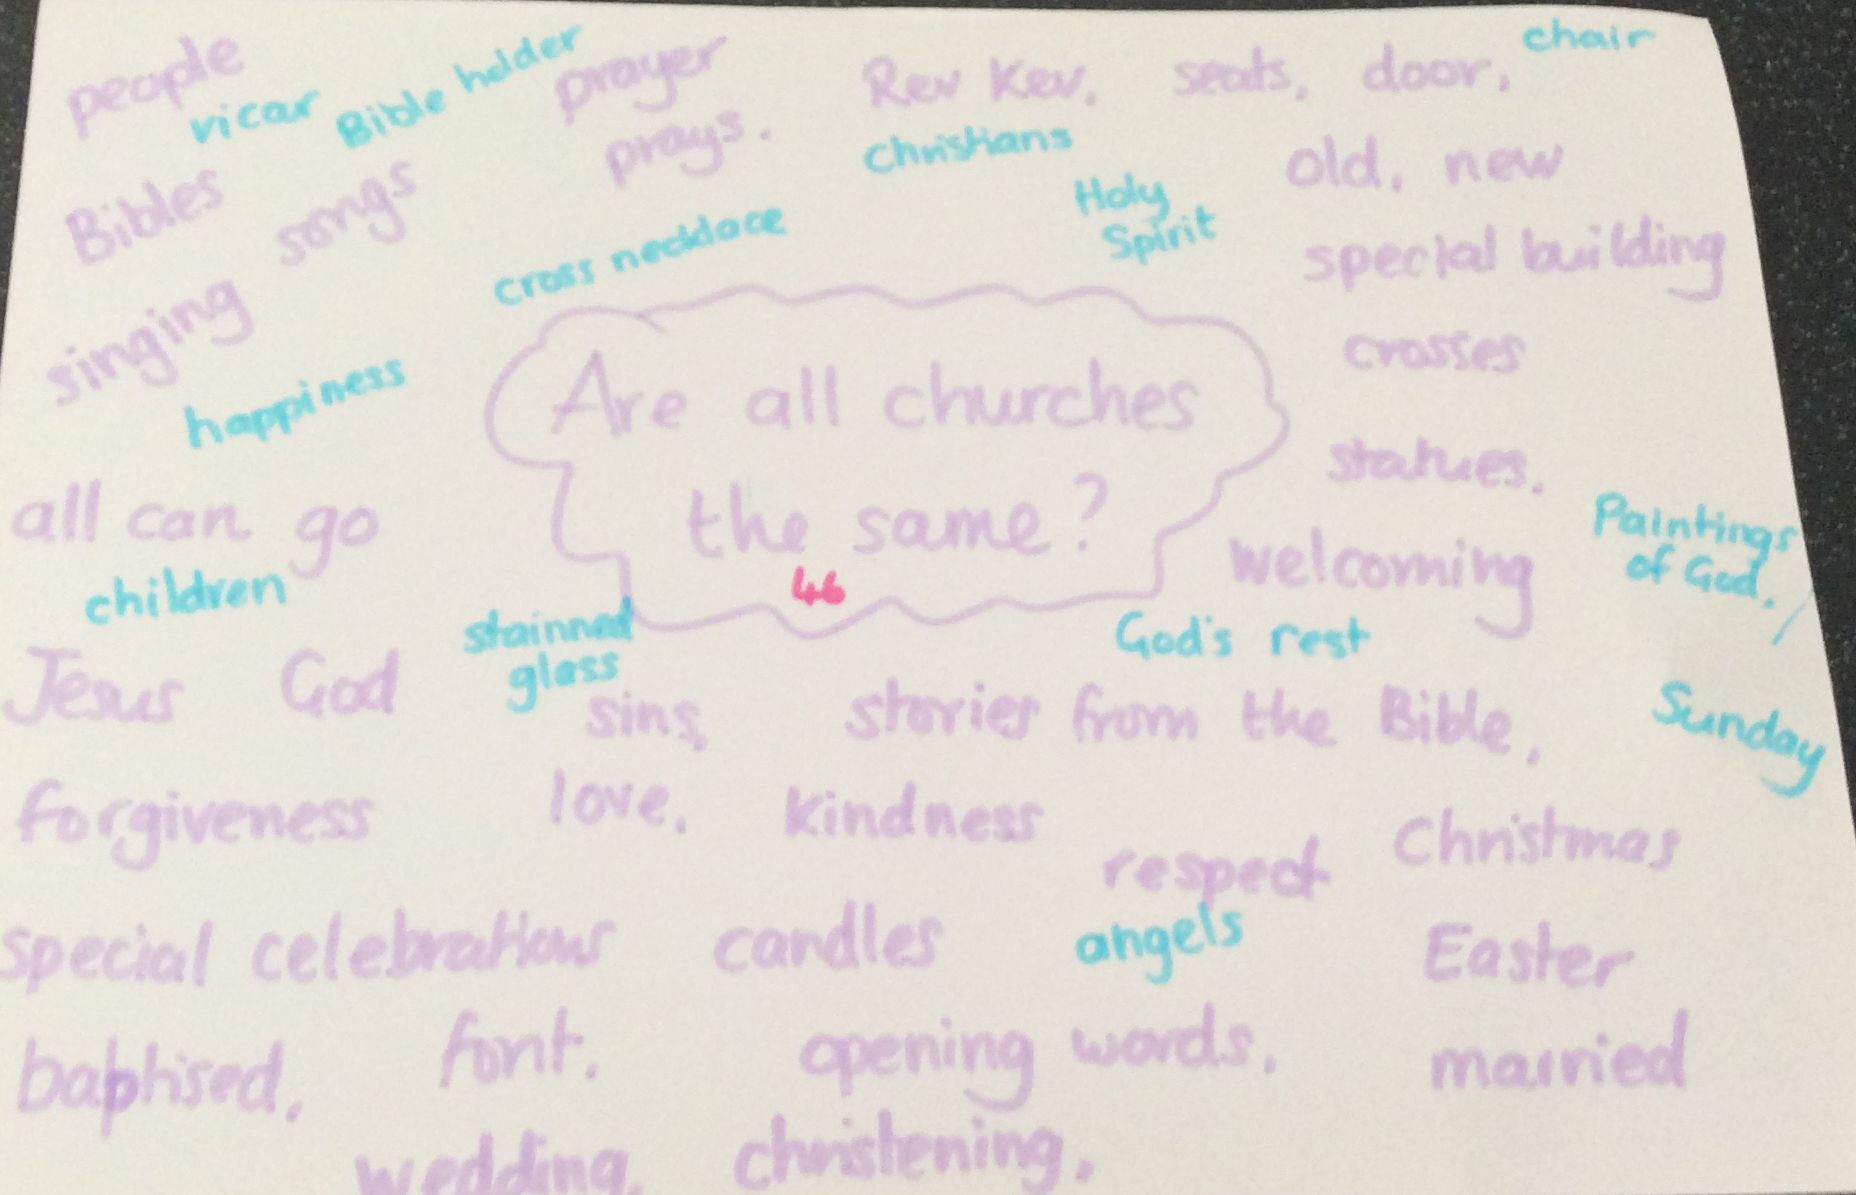 people
vicar
Bible holder
prayer
prays.
Rev Kev, seats, door,
chair
Christians
old, new
Bibles
songs
Holy
Spirit
cross necklace
special building
singing
crosses
happiness
Are all churches
the same?
46
statues.
all can go
welcoming
Paintings
of God.
children
stainned
glass
God's rest
Jesus God
sins,
stories from the Bible,
Sunday
forgiveness
love,
kindness
respect
Christmas
special celebrations
candles
angels
Easter
baptised,
font.
opening words,
married
wedding,
christening,